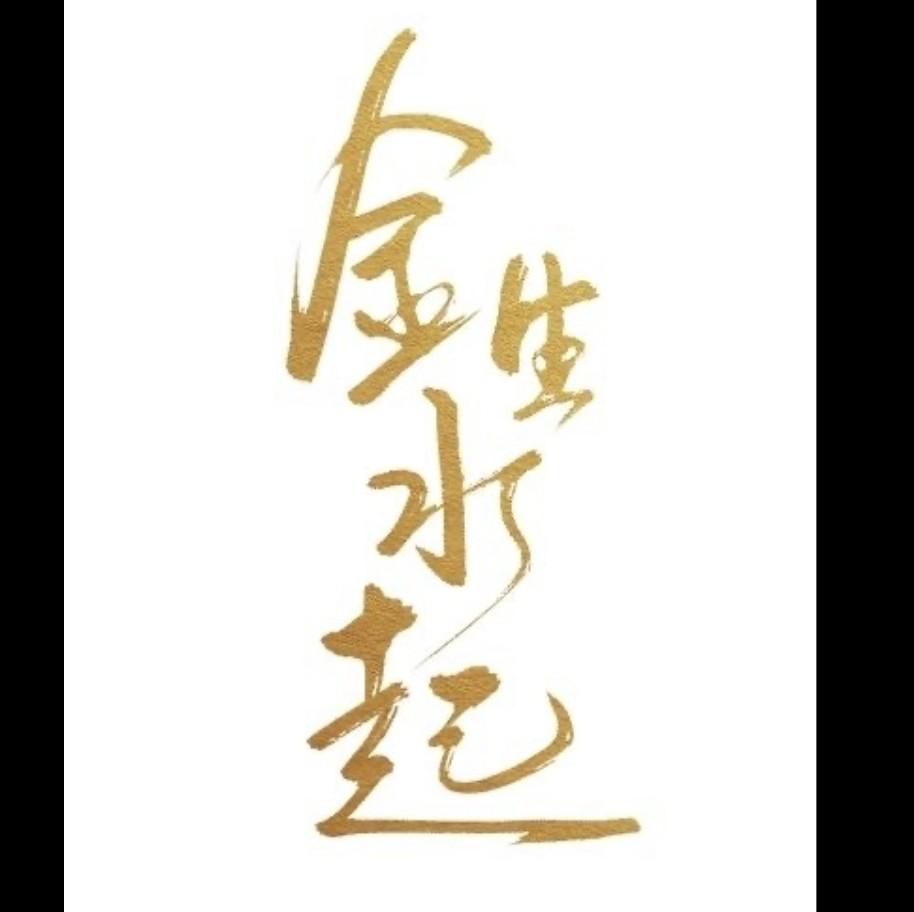 金生水起